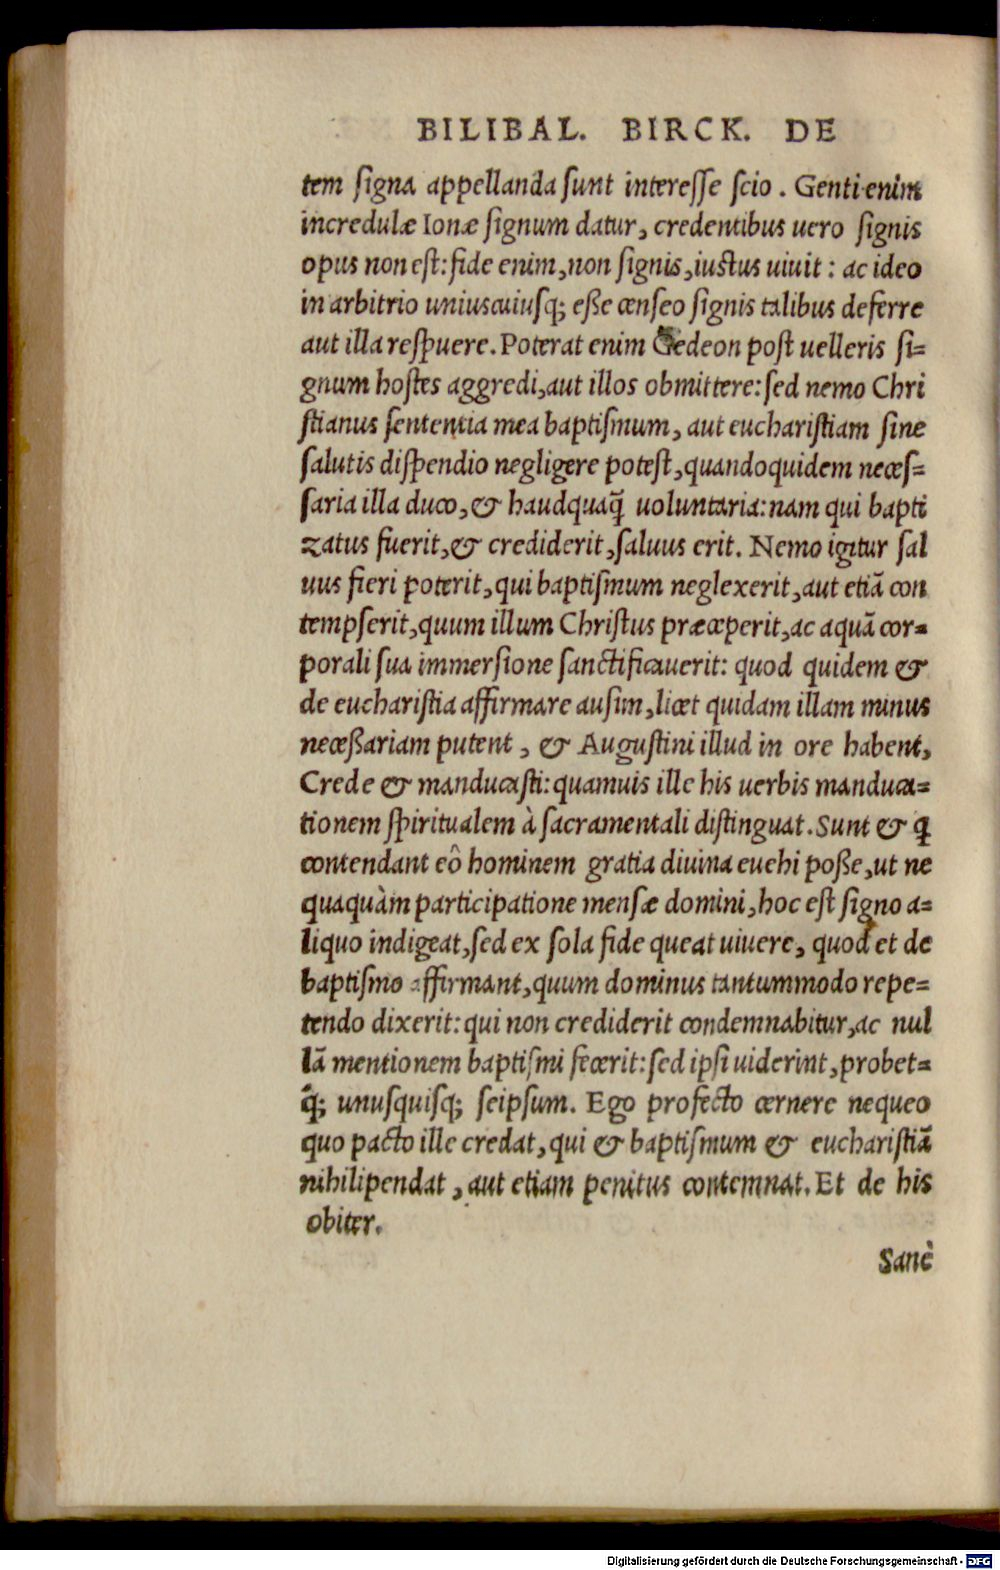 BILIBAL. BIRCK. DE
tem ſigna appellanda ſunt intereſſe ſcio . Genti enim
incredulæ Ionæ ſignum datur, credentibus uero ſignis
opus non eſt: fide enim, non ſignis, iuſtus uiuit : ac ideo
in arbitrio uniuscuiuſq; eße cenſeo ſignis talibus deferre
aut illa reſpuere. Poterat enim Gedeon poſt uelleris ſi=
gnum hoſtes aggredi, aut illos obmittere: ſed nemo Chri
ſtianus ſententia mea baptiſmum, aut euchariſtiam ſine
ſalutis diſpendio negligere poteſt, quandoquidem neceſ=
ſaria illa duco, & haudquaq̃ uoluntaria: nam qui bapti
zatus fuerit, & crediderit, ſaluus erit. Nemo igitur ſal
uus fieri poterit, qui baptiſmum neglexerit, aut etiã con
tempſerit, quum illum Chriſtus præceperit, ac aquã cor=
porali ſua immerſione ſanctificauerit: quod quidem &
de euchariſtia affirmare auſim, licet quidam illam minus
neceßariam putent , & Auguſtini illud in ore habent,
Crede & manducaſti: quamuis ille his uerbis manduca=
tionem ſpiritualem à ſacramentali diſtinguat. Sunt & q̃
contendant eô hominem gratia diuina euehi poße, ut ne
quaquàm participatione menſæ domini, hoc eſt ſigno a=
liquo indigeat, ſed ex ſola fide queat uiuere, quod et de
baptiſmo affirmant, quum dominus tantummodo repe=
tendo dixerit: qui non crediderit condemnabitur, ac nul
lã mentionem baptiſmi fecerit: ſed ipſi uiderint, probet=
q̃; unuſquiſq; ſeipſum. Ego profecto cernere nequeo
quo pacto ille credat, qui & baptiſmum & euchariſtiã
nihilipendat , aut etiam penitus contemnat. Et de his
obiter.
Sanè
Digitalisierung gefördert durch die Deutsche Forschungsgemeinschaft - DFG